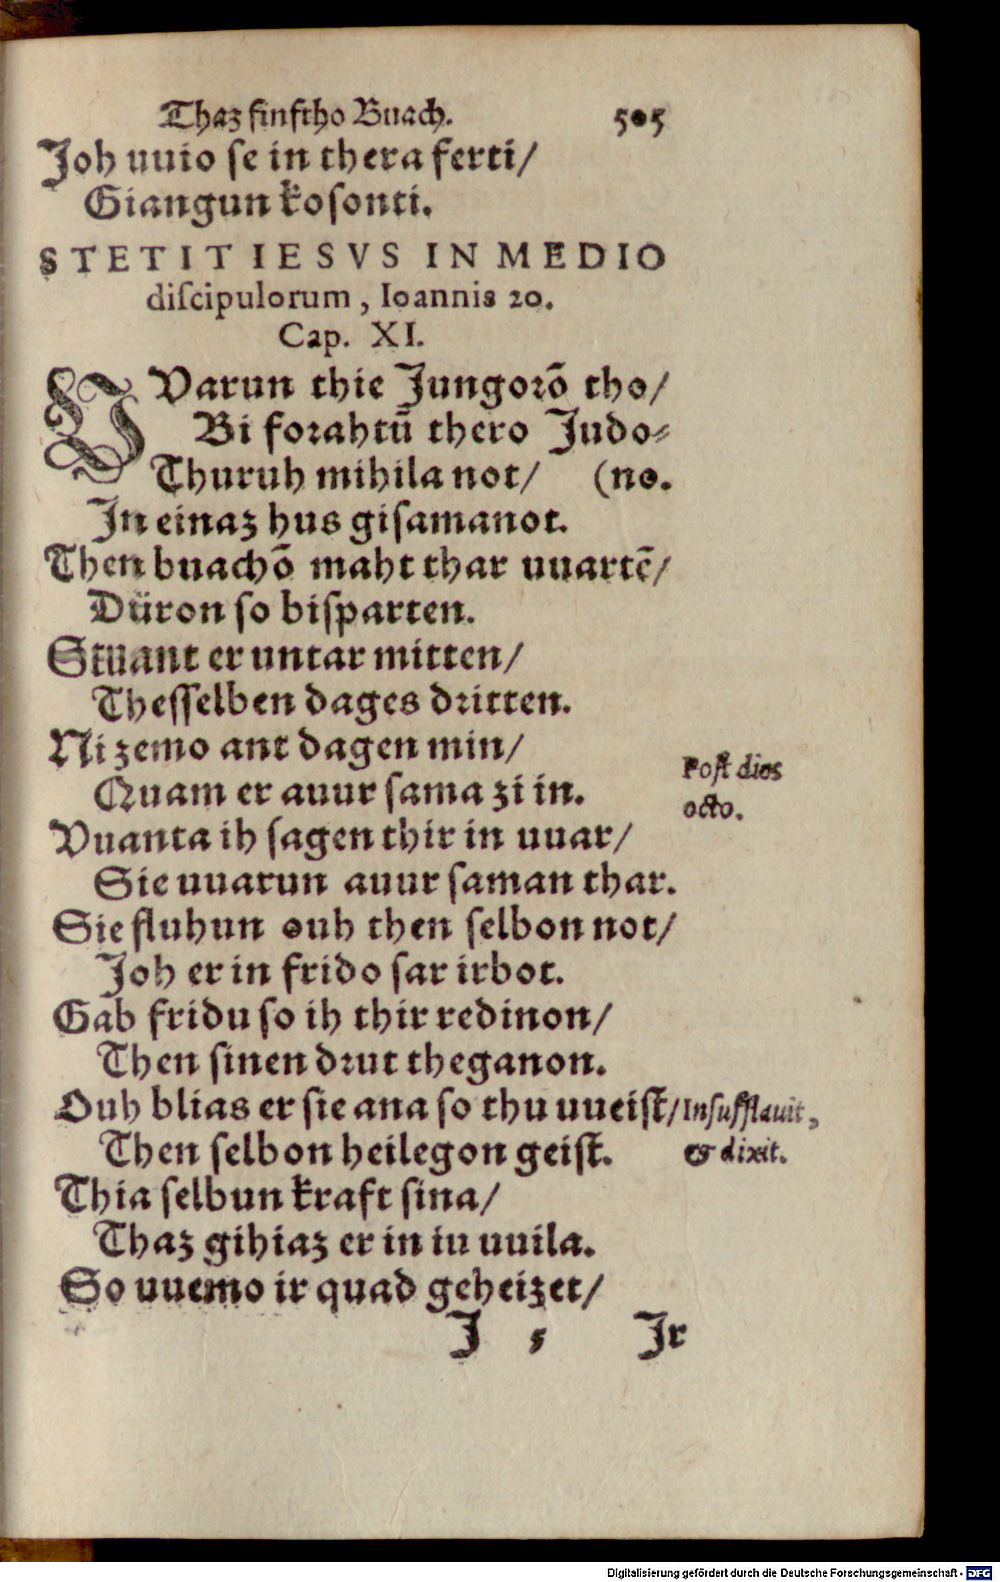 Thaz finftho Buach. 505
Joh uuio se in thera ferti/
Giangun kosonti.
STETIT IESVS IN MEDIO
discipulorum, Ioannis 20.
Cap. XI.
VVarun thie Jungorō tho/
Bi forahtū thero Judo⸗
Thuruh mihila not/ (no.
In einaz hus gisamanot.
Then buachō maht thar uuartē/
Düron so bisparten.
Stuant er untar mitten/
Thesselben dages dritten.
Ni zemo ant dagen min/
Quam er auur sama zi in.
Post dies
octo.
Vuanta ih sagen thir in uuar/
Sie uuarun auur saman thar.
Sie fluhun ouh then selbon not/
Joh er in frido sar irbot.
Gab fridu so ih thir redinon/
Then sinen drut theganon.
Ouh blias er sie ana so thu uueist/ Insufflauit,
Then selbon heilegon geist. & dixit.
Thia selbun kraft sina/
Thaz gihiaz er in iu uuila.
So uuemo ir quad geheizet/
I 5 Ir
Digitalisierung gefördert durch die Deutsche Forschungsgemeinschaft - DFG